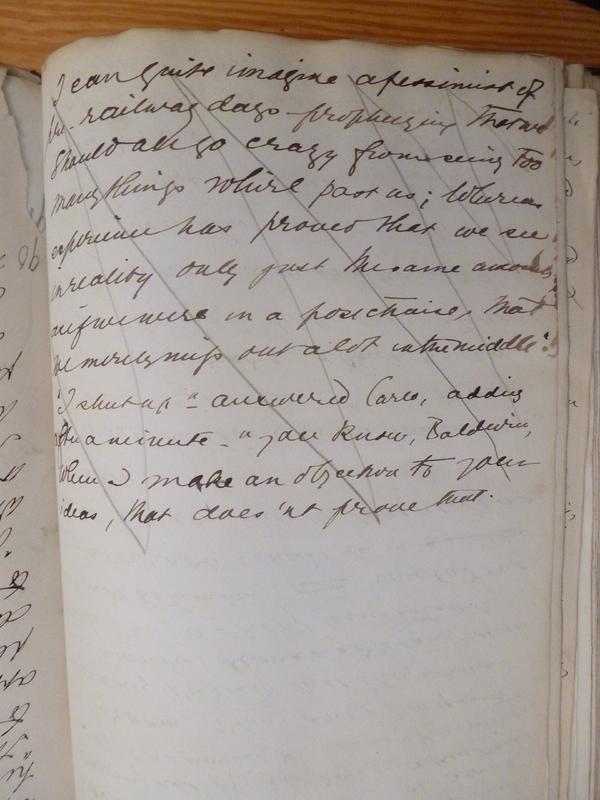 I can quite imagine a pessimist of
pre-railway days prophesying that we
should all go crazy from seeing too
many things whirl past us; whereas
experience has proved that we see
in reality only just the same amount
as if we were in a postchaise, that
we merely miss out a lot in the middle."
"I shut up" answered Carlo, adding
after a minute - "you know, Baldwin,
when I make an objection to your
ideas, that does'nt prove that.